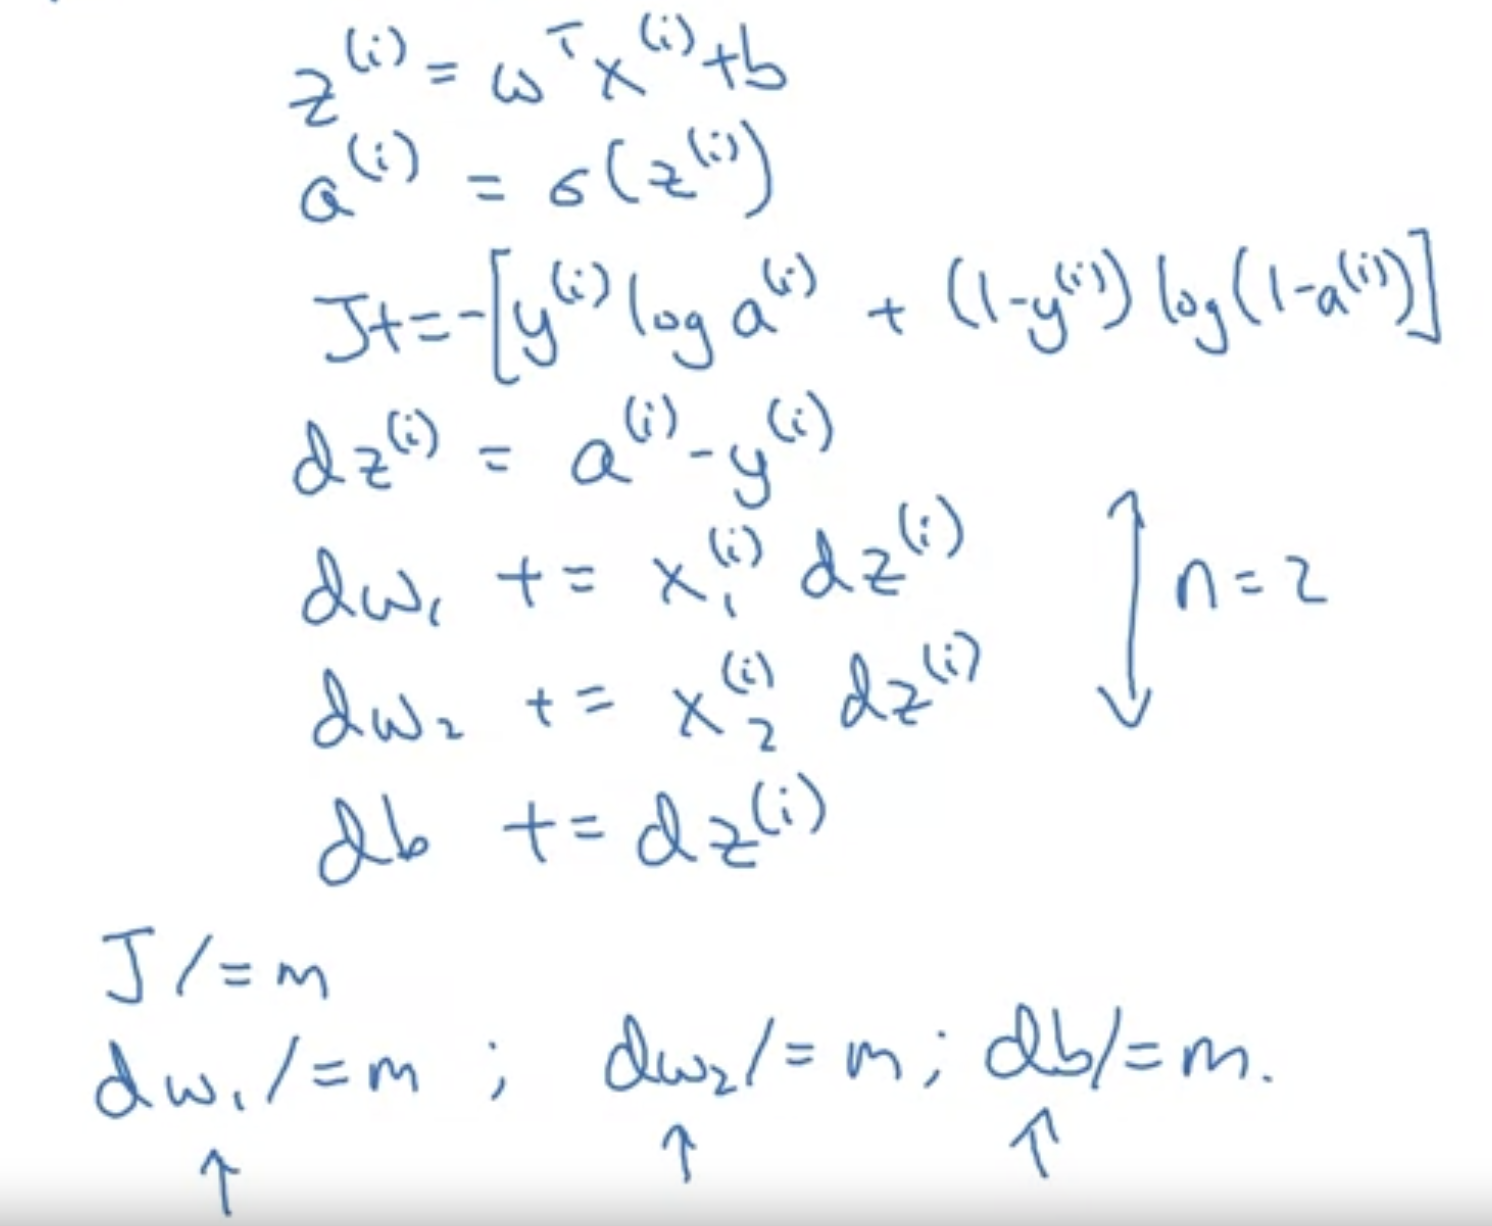 z^(i) = w^T x^(i) + b
a^(i) = σ(z^(i))
J += -[y^(i) log a^(i) + (1-y^(i)) log(1-a^(i))]
dz^(i) = a^(i) - y^(i)
dw₁ += x₁^(i) dz^(i)
dw₂ += x₂^(i) dz^(i)
n=2
db += dz^(i)
J /= m
dw₁ /= m ; dw₂ /= m ; db /= m.